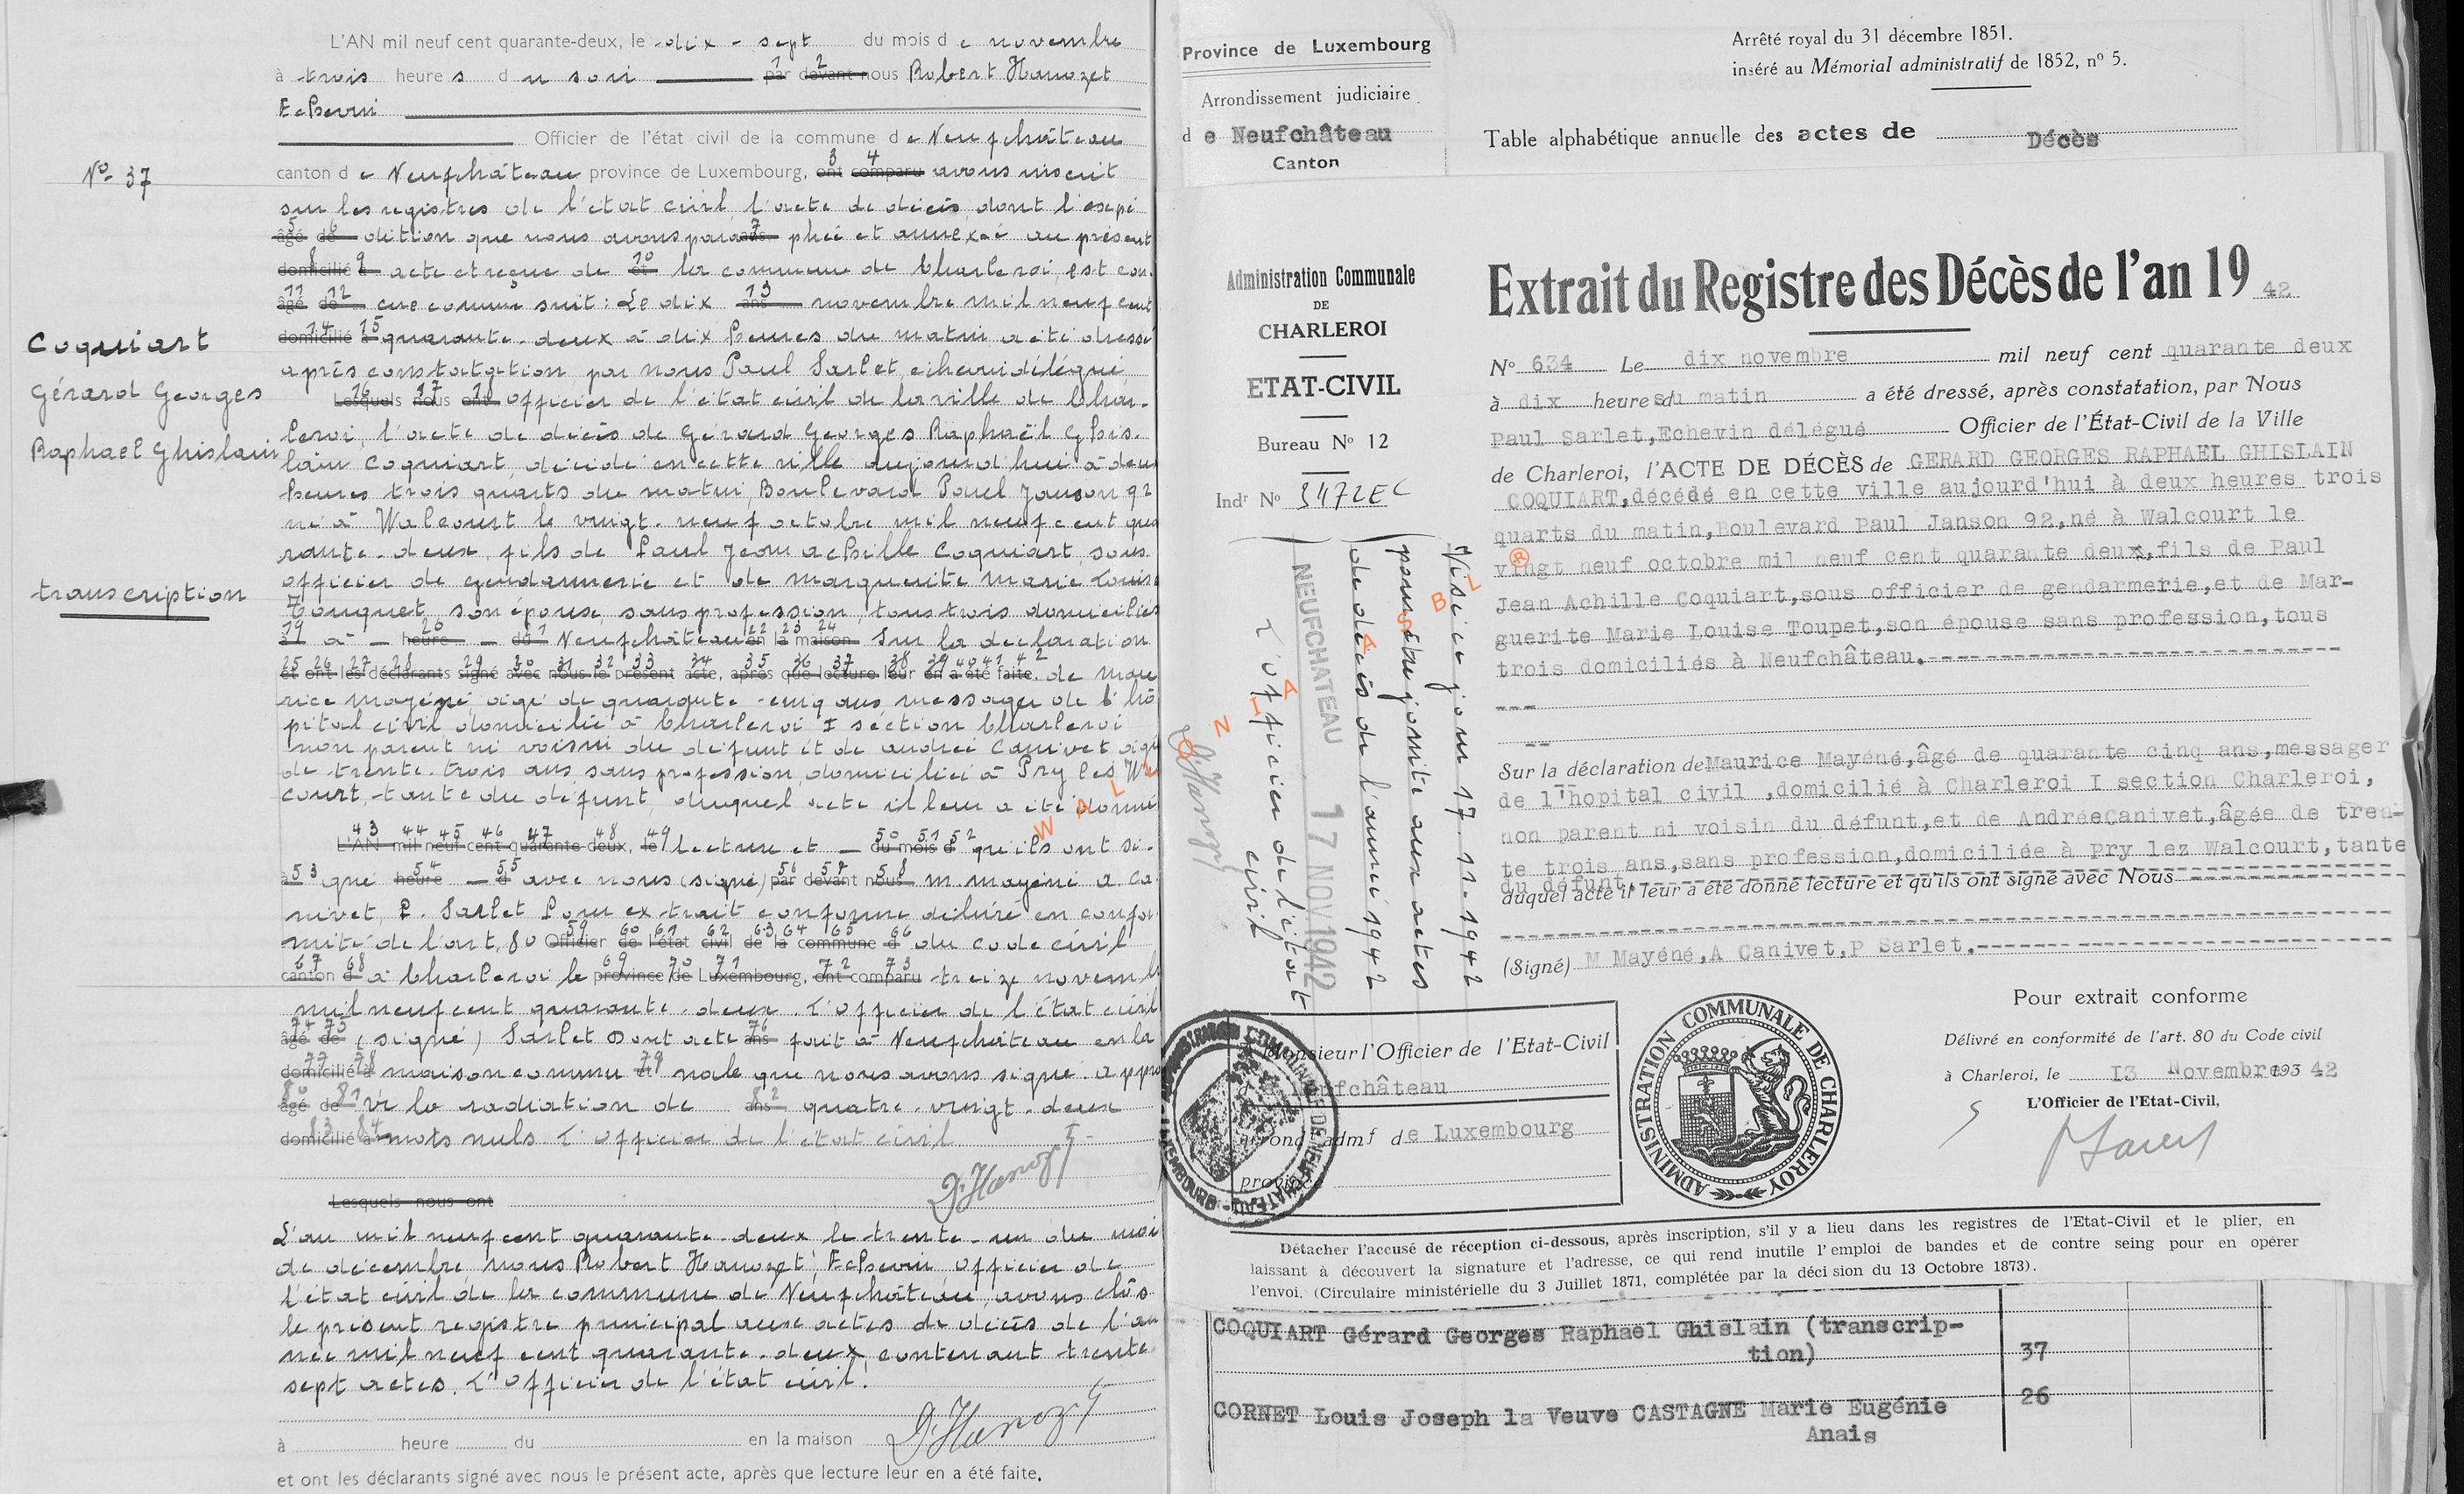 L'AN mil neuf cent quarante-deux, le dix-sept du mois de novembre
à trois heures du soir par devant nous Robert Hanozet
Echevin
Officier de l'état civil de la commune de Neufchâteau
N° 37
canton de Neufchâteau province de Luxembourg, ont comparu avons inscrit
sur les registres de l'état civil l'acte de décès, dont l'expé
âgé de dition que nous avons para ans phée et annexée au présent
domicilié à acte et reçue de et la commune de Charleroi, est con-
âgé de çue comme suit : Le dix ans novembre mil neuf cent
domicilié à quarante-deux à dix heures du matin a été dressé
après constatation par nous Paul Sarlet, échevin délégué
Lesquels nous ont officier de l'état civil de la ville de Char-
leroi, l'acte de décès de Gérard Georges Raphaël Ghis-
lain Coquiart, décédé en cette ville aujourd'hui à deux
heures trois quarts du matin, Boulevard Paul Janson 92
né à Walcourt le vingt-neuf octobre mil neuf cent qua
rante-deux, fils de Paul Jean Achille Coquiart, sous-
officier de gendarmerie et de Marguerite Marie Louise
Touquet, son épouse, sans profession, tous trois domiciliés
à à heure du Neufchâteau en la maison Sur la déclaration
et ont les déclarants signé avec nous le présent acte, après que lecture leur en a été faite. de Mau
rice Mayéné âgé de quarante-cinq ans, messager de l'hô
pital civil domicilié à Charleroi I section Charleroi
non parent ni voisin du défunt et de Andrée Canivet âgée
de trente-trois ans sans profession, domiciliée à Pry lez Wal
court, tante du défunt, duquel acte il leur a été donné
L'AN mil neuf cent quarante-deux, le lecture et du mois d qu'ils ont si-
à gné heure d avec nous (signé) par devant nous M. Mayéné A Ca
nivet, P. Sarlet Pour extrait conforme délivré en confor
mité de l'art. 80 Officier de l'état civil de la commune d du code civil
canton d à Charleroi le province de Luxembourg, ont comparu treize novembre
mil neuf cent quarante-deux. L'officier de l'état civil
âgé de (signé) Sarlet Dont acte ans fait à Neufchâteau en la
domicilié à maison commu et nale que nous avons signé. Appro
âgé de uvé la radiation de ans quatre-vingt-deux
domicilié à mots nuls L'officier de l'état civil
R. Hanozet
Lesquels nous ont
L'an mil neuf cent quarante-deux le trente-un du moi
de décembre nous Robert Hanozet, Echevin, officier de
l'état civil de la commune de Neufchâteau, avons clôs
le présent registre principal aux actes de décès de l'an
née mil neuf cent quarante-deux, contenant trente
sept actes. L'officier de l'état civil.
R. Hanozet
à heure du en la maison
et ont les déclarants signé avec nous le présent acte, après que lecture leur en a été faite.
Coquiart
Gérard Georges
Raphael Ghislain
transcription
Province de Luxembourg
Arrondissement judiciaire
de Neufchâteau
Canton
Arrêté royal du 31 décembre 1851.
inséré au Mémorial administratif de 1852, n° 5.
Table alphabétique annuelle des actes de Décès
Administration Communale
DE
CHARLEROI
ETAT-CIVIL
Bureau N° 12
Indr N° 3472EC
Extrait du Registre des Décès de l'an 19 42
N° 634 Le dix novembre mil neuf cent quarante deux
à dix heures du matin a été dressé, après constatation, par Nous
Paul Sarlet,Echevin délégué Officier de l'État-Civil de la Ville
de Charleroi, l'ACTE DE DÉCÈS de GERARD GEORGES RAPHAEL GHISLAIN
COQUIART,décédé en cette ville aujourd'hui à deux heures trois
quarts du matin,Boulevard Paul Janson 92,né à Walcourt le
vingt neuf octobre mil neuf cent quarante deux,fils de Paul
Jean Achille Coquiart,sous officier de gendarmerie,et de Mar-
guerite Marie Louise Toupet,son épouse sans profession,tous
trois domiciliés à Neufchâteau.
Sur la déclaration de Maurice Mayéné,âgé de quarante cinq ans,messager
de l'hopital civil ,domicilié à Charleroi I section Charleroi,
non parent ni voisin du défunt,et de AndréeCanivet,âgée de tren-
te trois ans,sans profession,domiciliée à Pry lez Walcourt,tante
du défunt.
duquel acte il leur a été donné lecture et qu'ils ont signé avec Nous
(Signé) M Mayéné,A Canivet,P Sarlet.
Visé ce jour 17-11-1942
pour être joint aux actes
de décès de l'année 1942
NEUFCHATEAU 17 NOV 1942
L'officier de l'état
civil
R. Hanozet
® WALLONIA ASBL
Pour extrait conforme
Délivré en conformité de l'art. 80 du Code civil
à Charleroi, le I3 Novembre 193 42
L'Officier de l'Etat-Civil,
PSarlet
ADMINISTRATION COMMUNALE DE CHARLEROY
Monsieur l'Officier de l'Etat-Civil
Neufchâteau
arrond adm de Luxembourg
province
Détacher l'accusé de réception ci-dessous, après inscription, s'il y a lieu dans les registres de l'Etat-Civil et le plier, en
laissant à découvert la signature et l'adresse, ce qui rend inutile l'emploi de bandes et de contre seing pour en opérer
l'envoi. (Circulaire ministérielle du 3 Juillet 1871, complétée par la décision du 13 Octobre 1873).
COQUIART Gérard Georges Raphael Ghislain (transcrip-
tion) 37
CORNET Louis Joseph la Veuve CASTAGNE Marie Eugénie 26
Anais